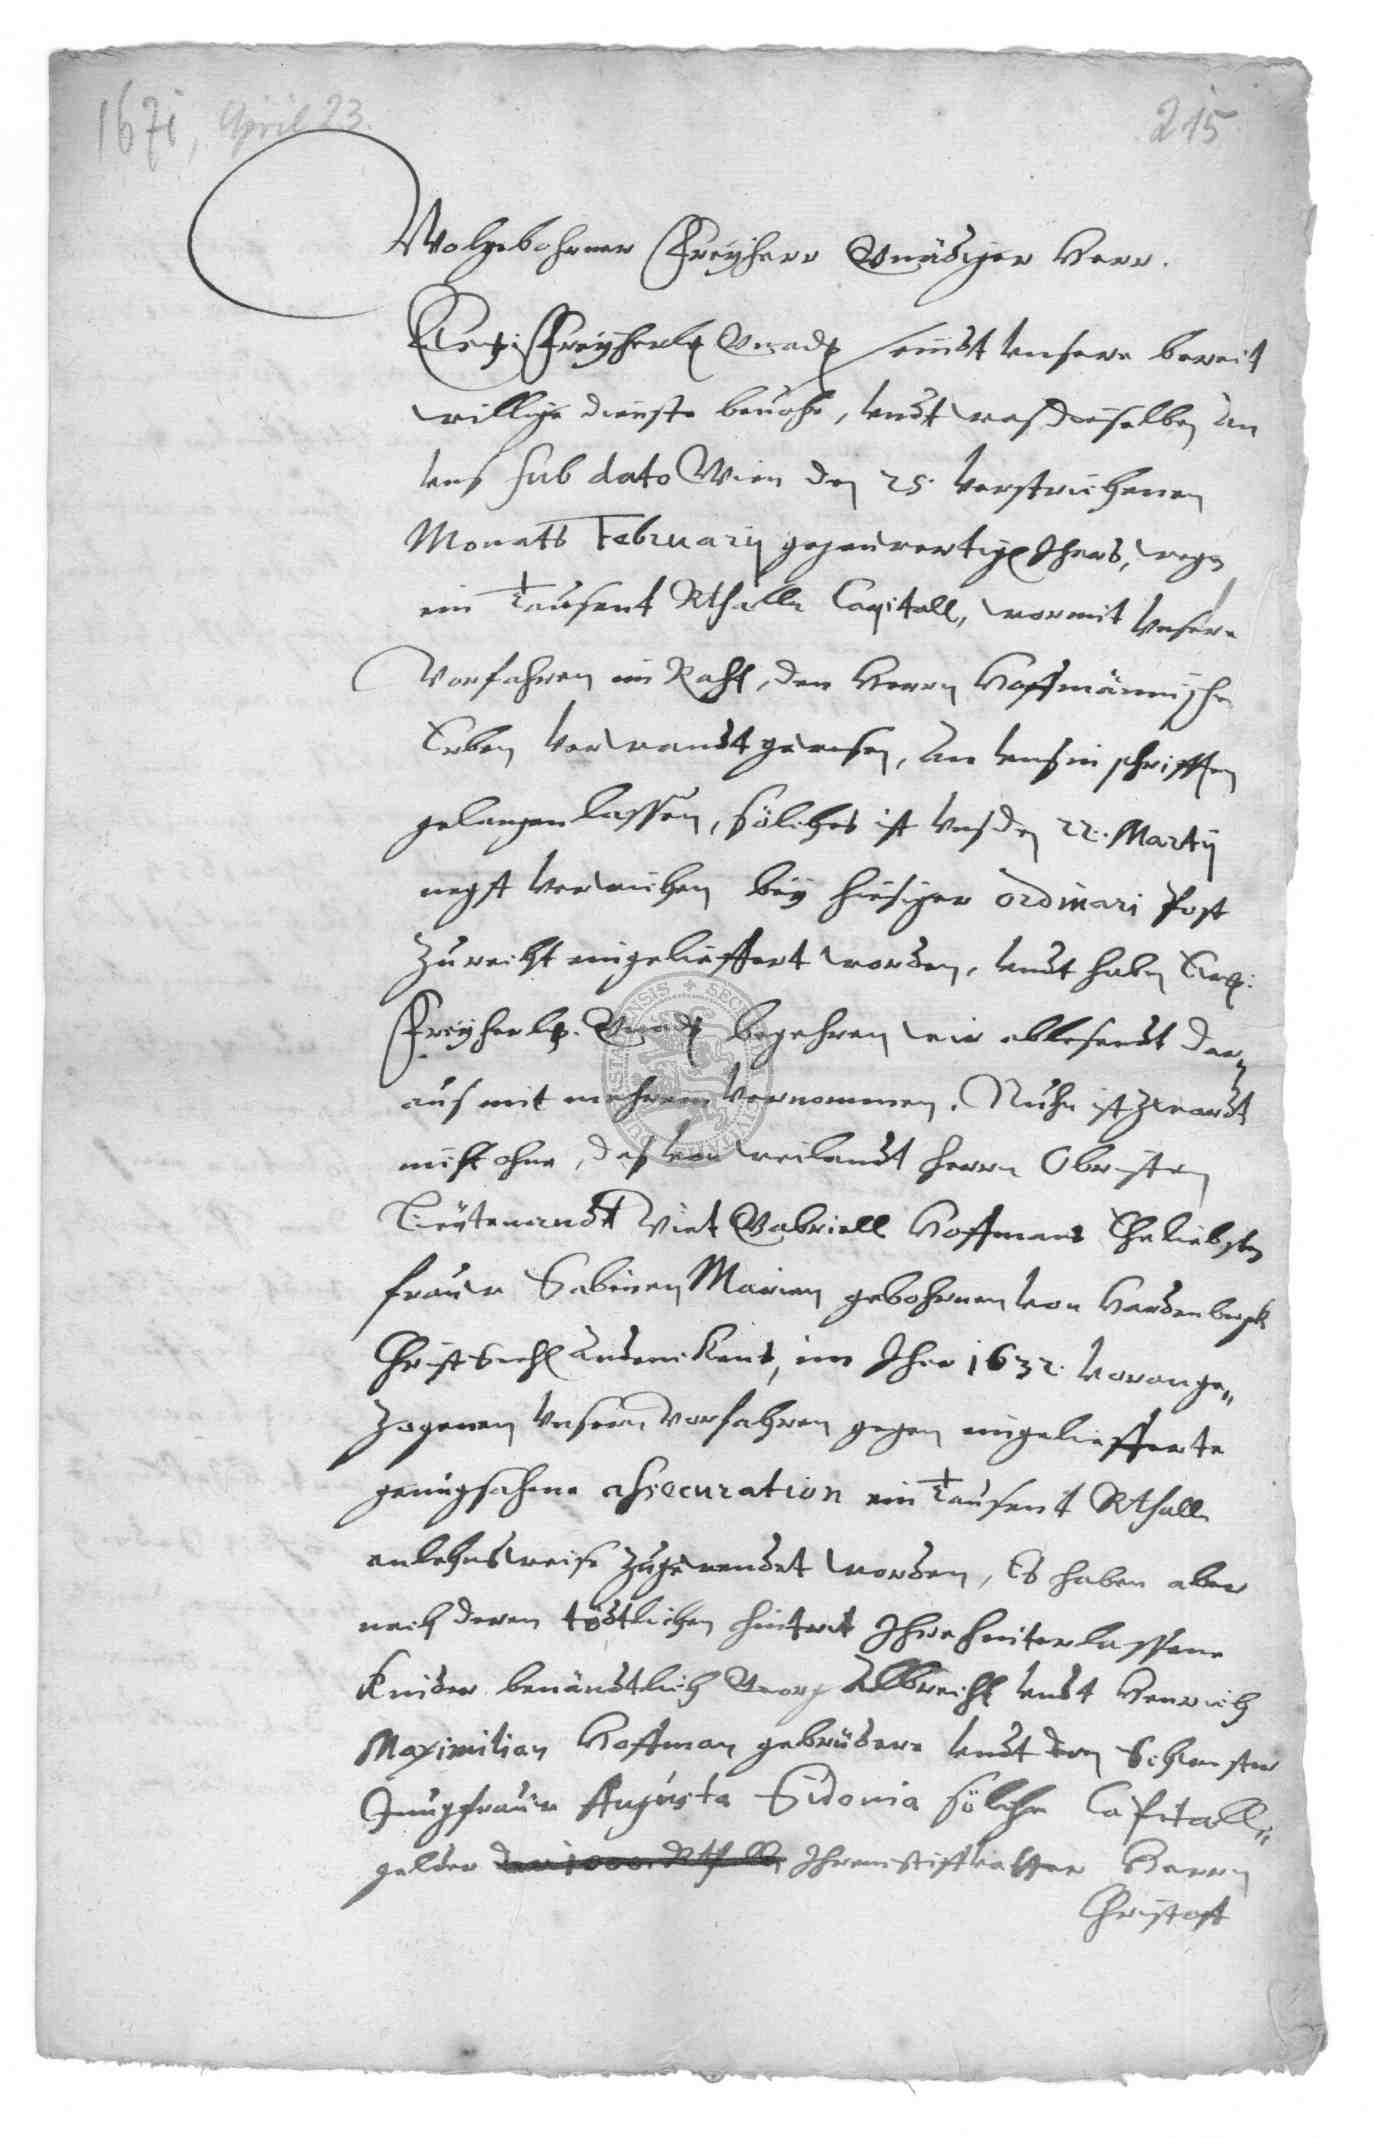 1671, April 23.
215
Wolgebohrner Freyherr Gnädiger Herr.
Freyherl. Gnad. seindt unsere bereit
willige dienste bevohr, undt was dieselben an
uns sub dato Wien den 25. verstrichenen
Monats February gegenwertig. Jhars, wegen
ein Tausent Rthaller Capitall, wormit unsere
Vorfahren im Raht, den Herrn Hoffmännische
Erben verwandt gewesen, an uns in schrifften
gelangen lassen, sölches ist uns den 22. Marty
negst verwichen bey hiesiger ordinari Post
zurecht eingelieffert worden, undt haben
Freyherl. Gnad. begehren wir ablesendt dar„
aus mit mehrem vernommen. Nuhn ist zwardt
nicht ohne, das von weilandt herrn Obristen
Lieutenandt Viet Gabriell Hoffmans Eheliebsten
frauw Sabinen Marien gebohrnen von Hardenbergk
Christ Seehl. andenkens, im Jhar 1632. vorange„
zogenen unsern Vorfahren gegen eingelieffterte
genugsahme assecuration ein Tausent Rthaller
anlehnsweise zugewendet worden, Es haben aber
nach deren tödtlichen hintrit Ihre hinterlassene
Kinder benändtlich Georg Albrecht undt Henrich
Maximilian Hoffman gebrüdere undt dern Schwester
Jungfrauw Augusta Sidonia sölche Capitall„
gelder der 1000. Rthaller Ihrem Herrn
Christoff